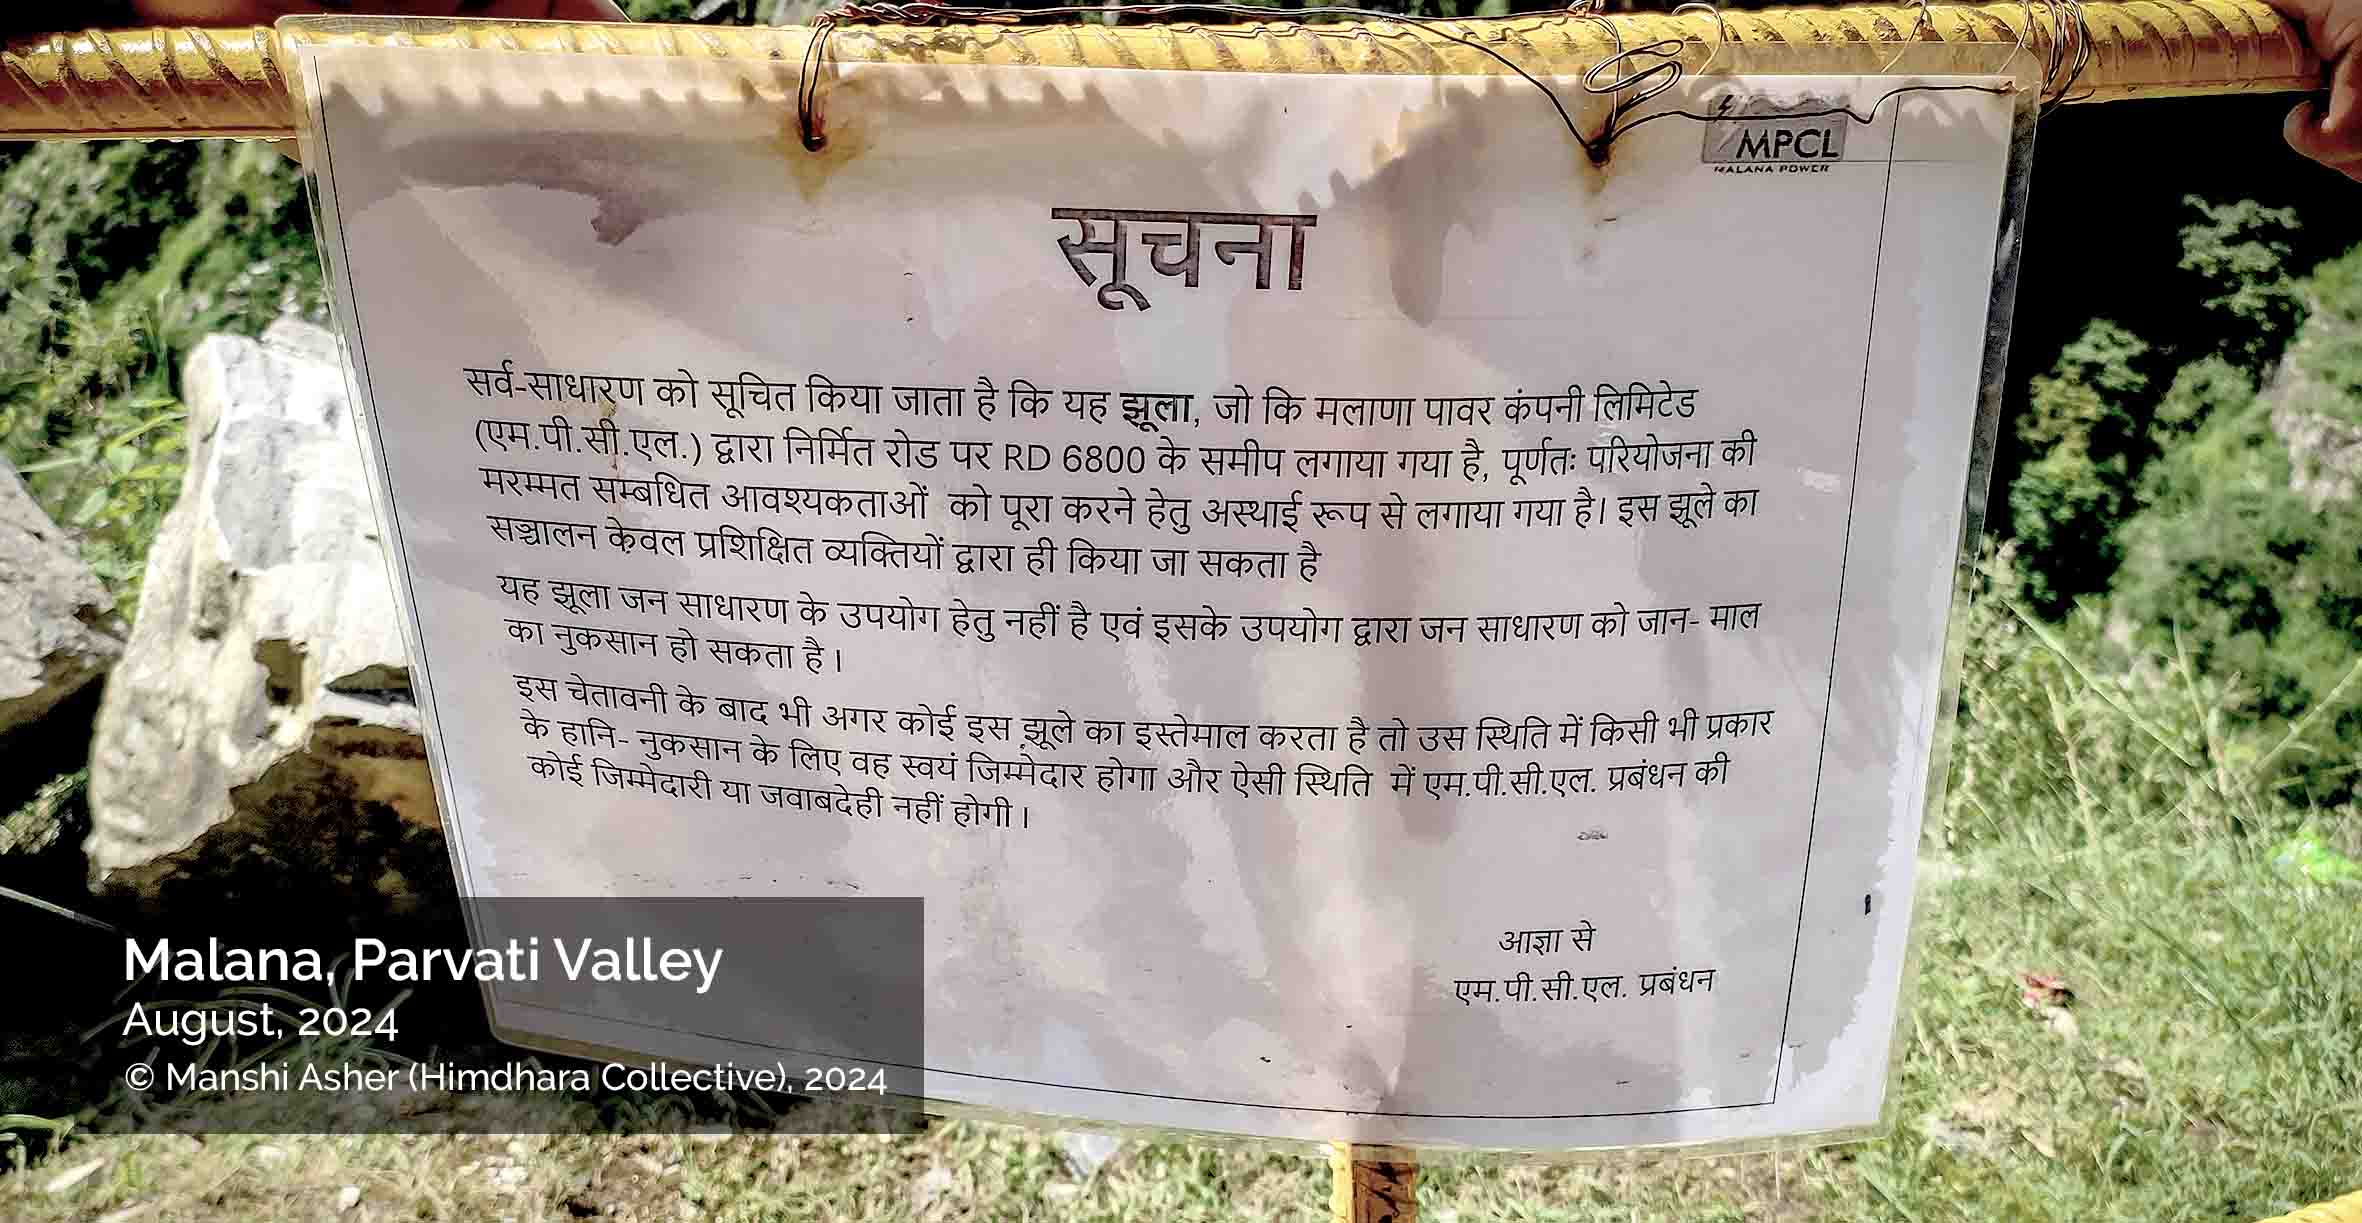 MPCL
MALANA POWER
सूचना
सर्व-साधारण को सूचित किया जाता है कि यह झूला, जो कि मलाणा पावर कंपनी लिमिटेड
(एम.पी.सी.एल.) द्वारा निर्मित रोड पर RD 6800 के समीप लगाया गया है, पूर्णतः परियोजना की
मरम्मत सम्बधित आवश्यकताओं को पूरा करने हेतु अस्थाई रूप से लगाया गया है। इस झूले का
सञ्चालन केवल प्रशिक्षित व्यक्तियों द्वारा ही किया जा सकता है
यह झूला जन साधारण के उपयोग हेतु नहीं है एवं इसके उपयोग द्वारा जन साधारण को जान- माल
का नुकसान हो सकता है ।
इस चेतावनी के बाद भी अगर कोई इस झूले का इस्तेमाल करता है तो उस स्थिति में किसी भी प्रकार
के हानि- नुकसान के लिए वह स्वयं जिम्मेदार होगा और ऐसी स्थिति में एम.पी.सी.एल. प्रबंधन की
कोई जिम्मेदारी या जवाबदेही नहीं होगी ।
आज्ञा से
एम.पी.सी.एल. प्रबंधन
Malana, Parvati Valley
August, 2024
© Manshi Asher (Himdhara Collective), 2024